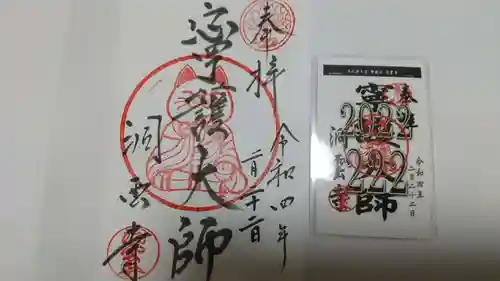 奉拝
令和四年
二月二十二日
寧護大師
洞雲寺
奉拝
2022
222
令和四年
二月二十二日
洞雲寺